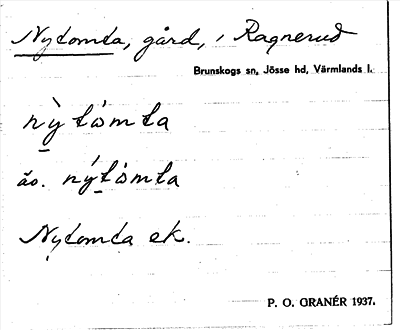 Nytomta, gård, i Ragnerud
Brunskogs sn, Jösse hd, Värmlands l.
ǹy̱tòmta
äo. ńy̱tòmta
Nytomta ek.
P. O. GRANÉR 1937.